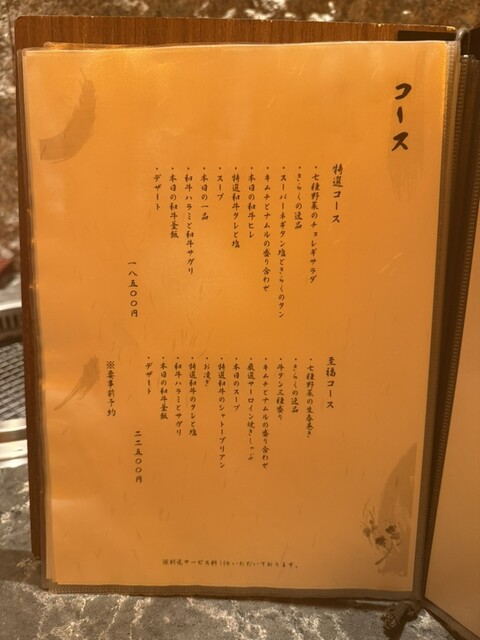 コース
特選コース
・七種野菜のチョレギサラダ
・きらくの逸品
・スーパーネギタン塩ときらくのタン
・キムチとナムルの盛り合わせ
・本日の和牛ヒレ
・特選和牛タレと塩
・スープ
・本日の一品
・和牛ハラミと和牛サガリ
・本日の和牛釜飯
・デザート
一八五〇〇円
至福コース
・七種野菜の生春巻き
・きらくの逸品
・牛タン三種盛り
・キムチとナムルの盛り合わせ
・厳選サーロイン焼きしゃぶ
・本日のスープ
・特選和牛のシャトーブリアン
・お凌ぎ
・特選和牛のタレと塩
・和牛ハラミとサガリ
・本日の和牛釜飯
・デザート
二二五〇〇円
※要事前予約
※別途サービス料 いただいております。